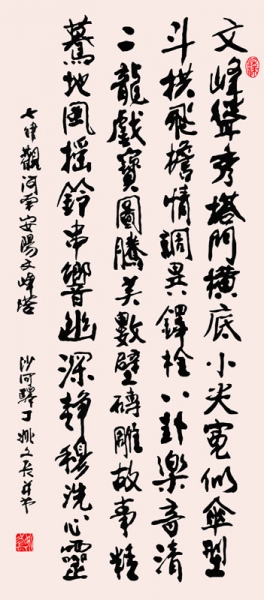 文峰聳秀塔門橫底小尖寬似傘型
斗栱飛檐情調異鐸栓八卦樂音清
二龍戲寶圖騰美數壁磚雕故事精
驀地風搖鈴串響幽深靜穆洗心靈
七律觀河南安陽文峰塔 沙河驛丁姚文長并书